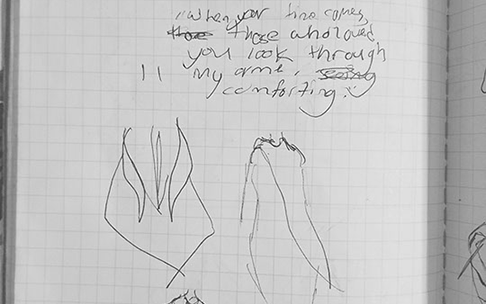 "When your time comes,
those who loved
you look through
my arms.
comforting :)